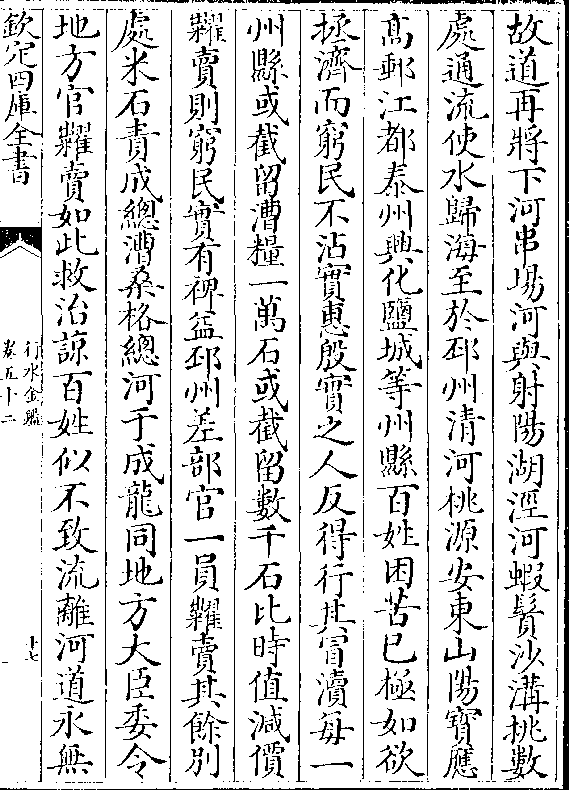 故道再將下河串塲河與射陽湖涇河蝦鬚沙溝挑數
處通流使水歸海至於邳州清河桃源安東山陽寶應
髙郵江都泰州興化鹽城等州縣百姓困苦已極如欲
拯濟而窮民不沾實惠殷實之人反得行其冒瀆每一
州縣或截留漕糧一萬石或截留數千石比時值減價
糶賣則窮民實有裨益邳州差部官一員糶賣其餘別
處米石責成總漕桑格總河于成龍同地方大臣委令
地方官糶賣如此救治諒百姓似不致流離河道永無
欽定四庫全書
行水金鑑
卷五十二
十七